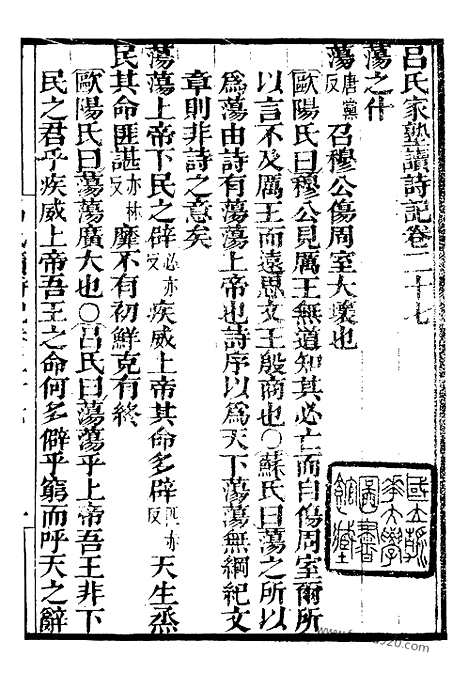 呂氏家塾讀詩記卷二十七
蕩之什
蕩唐黨反召穆公傷周室大壞也
歐陽氏曰穆公見厲王無道知其必亡而自傷周室爾所
以言不及厲王而遠思文王殷商也○蘇氏曰蕩之所以
爲蕩由詩有蕩蕩上帝也詩序以爲天下蕩蕩無綱紀文
章則非詩之意矣
蕩蕩上帝下民之辟必亦反疾威上帝其命多辟匹亦反天生烝
民其命匪諶市林反靡不有初鮮克有終
歐陽氏曰蕩蕩廣大也○呂氏曰蕩蕩乎上帝吾王非下
民之君乎疾威上帝吾王之命何多僻乎窮而呼天之辭
國立
大學
圖書
館藏